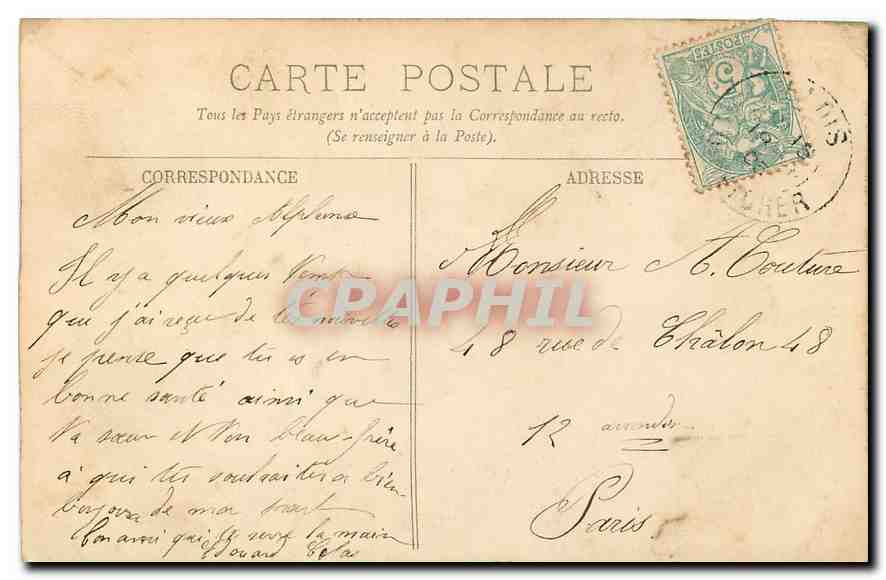 CARTE POSTALE
Tous les Pays étrangers n'acceptent pas la Correspondance au recto.
(Se renseigner à la Poste).
CORRESPONDANCE
Mon vieux Alphonse
Il y a quelques
que j'ai reçue de
je pense que tu es en
bonne santé ainsi que
ta sœur et ton beau-frère
à qui tu souhaiteras bien
bonjour de ma part
ton ami qui te serre la main
Edouard
ADRESSE
Monsieur A. Couture
48 rue de Châlon 48
12
Paris
POSTES
5
CHER
CPAPHIL